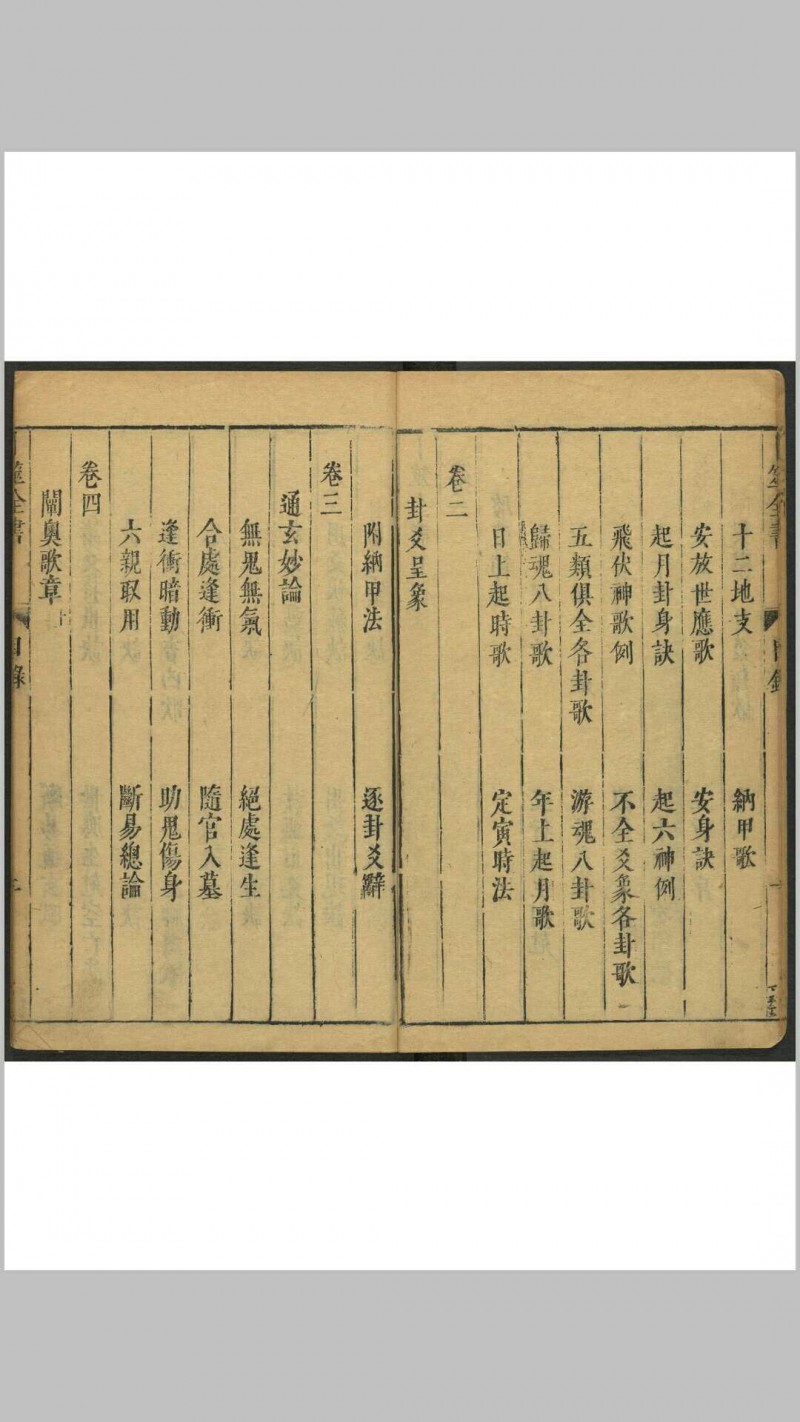 全書
目錄
十二地支　納甲歌
安放世應歌　安身訣
起月卦身訣　起六神例
飛伏神歌例　不全爻象各卦歌
五類俱全各卦歌　游魂八卦歌
歸魂八卦歌　年上起月歌
日上起時歌　定寅時法
卷二
卦爻呈象
附納甲法　逐卦爻辭
卷三
通玄妙論
無鬼無氣　絕處逢生
合處逢衝　隨官入墓
逢衝暗動　助鬼傷身
六親取用　斷易總論
卷四
闡奧歌章
筮全書
目錄